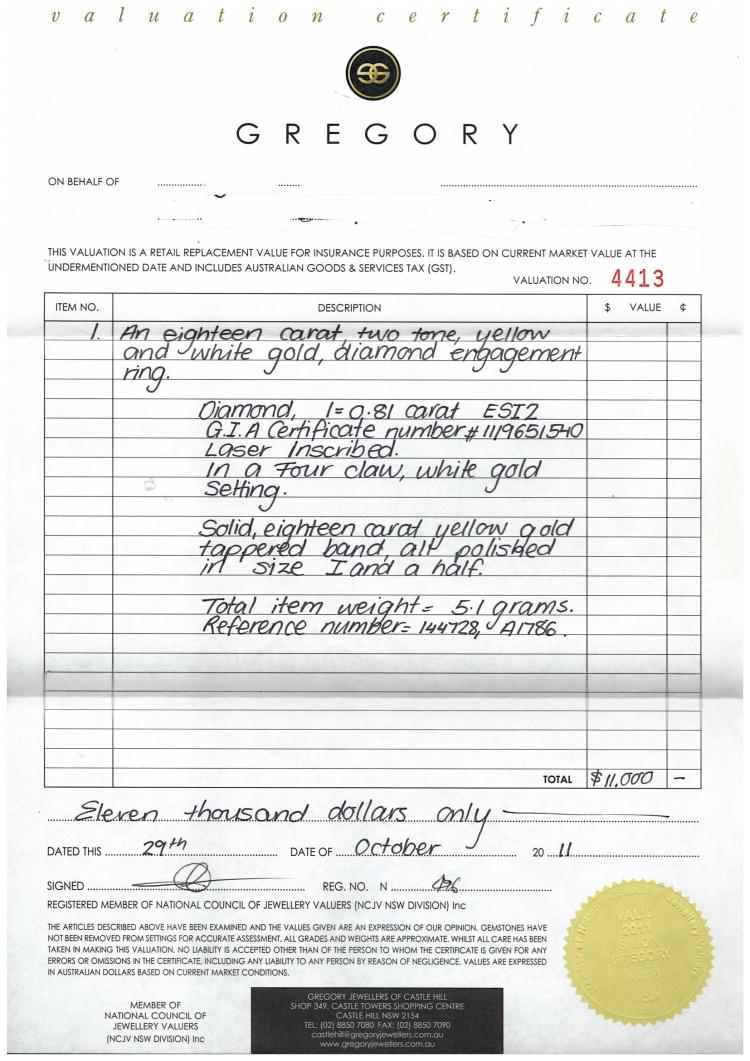 valuation certificate
GREGORY
ON BEHALF OF
THIS VALUATION IS A RETAIL REPLACEMENT VALUE FOR INSURANCE PURPOSES. IT IS BASED ON CURRENT MARKET VALUE AT THE
UNDERMENTIONED DATE AND INCLUDES AUSTRALIAN GOODS & SERVICES TAX (GST).
VALUATION NO. 4413
ITEM NO. DESCRIPTION $ VALUE ¢
1. An eighteen carat, two tone, yellow
and white gold, diamond engagement
ring.
Diamond, 1= 0.81 carat ESI2
G.I.A Certificate number# 1119651540
Laser Inscribed.
In a Four claw, white gold
Setting.
Solid, eighteen carat yellow gold
tappered band, all polished
in size I and a half.
Total item weight= 5.1 grams.
Reference number= 144728, A1786.
TOTAL $11,000 –
Eleven thousand dollars only
DATED THIS 29th DATE OF October 20 11
SIGNED REG. NO. N
REGISTERED MEMBER OF NATIONAL COUNCIL OF JEWELLERY VALUERS (NCJV NSW DIVISION) Inc
THE ARTICLES DESCRIBED ABOVE HAVE BEEN EXAMINED AND THE VALUES GIVEN ARE AN EXPRESSION OF OUR OPINION. GEMSTONES HAVE
NOT BEEN REMOVED FROM SETTINGS FOR ACCURATE ASSESSMENT, ALL GRADES AND WEIGHTS ARE APPROXIMATE. WHILST ALL CARE HAS BEEN
TAKEN IN MAKING THIS VALUATION, NO LIABILITY IS ACCEPTED OTHER THAN OF THE PERSON TO WHOM THE CERTIFICATE IS GIVEN FOR ANY
ERRORS OR OMISSIONS IN THE CERTIFICATE, INCLUDING ANY LIABILITY TO ANY PERSON BY REASON OF NEGLIGENCE. VALUES ARE EXPRESSED
IN AUSTRALIAN DOLLARS BASED ON CURRENT MARKET CONDITIONS.
MEMBER OF
NATIONAL COUNCIL OF
JEWELLERY VALUERS
(NCJV NSW DIVISION) Inc
GREGORY JEWELLERS OF CASTLE HILL
SHOP 349, CASTLE TOWERS SHOPPING CENTRE
CASTLE HILL NSW 2154
TEL: (02) 8850 7080 FAX: (02) 8850 7090
castlehill@gregoryjewellers.com.au
www.gregoryjewellers.com.au